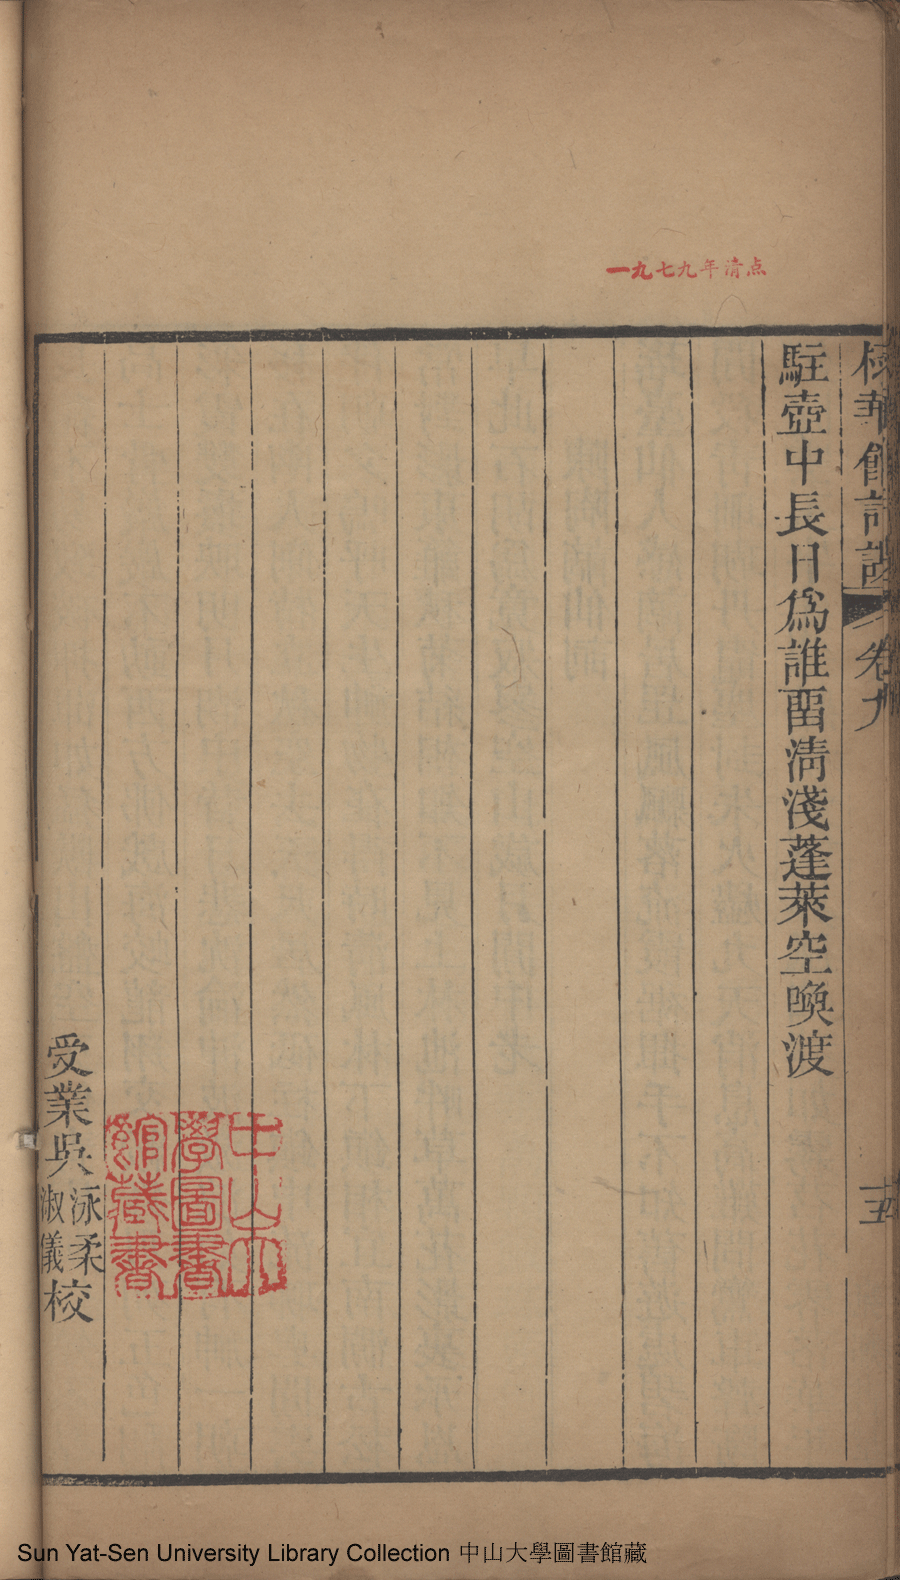 一九七九年清点
棣華館詩課
卷九
十五
駐壺中長日為誰畱清淺蓬萊空喚渡
中山大
學圖書
館藏書
受業吳泳柔淑儀校
Sun Yat-Sen University Library Collection 中山大學圖書館藏